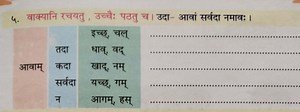 ५. वाक्यानि रचयतु , उच्चैः पठतु च। उदा- आवां सर्वदा नमावः।
इच्छ्, चल्
तदा धाव्, वद्
आवाम् कदा खाद्, नम्
सर्वदा यच्छ्, गम्
न आगम्, हस्